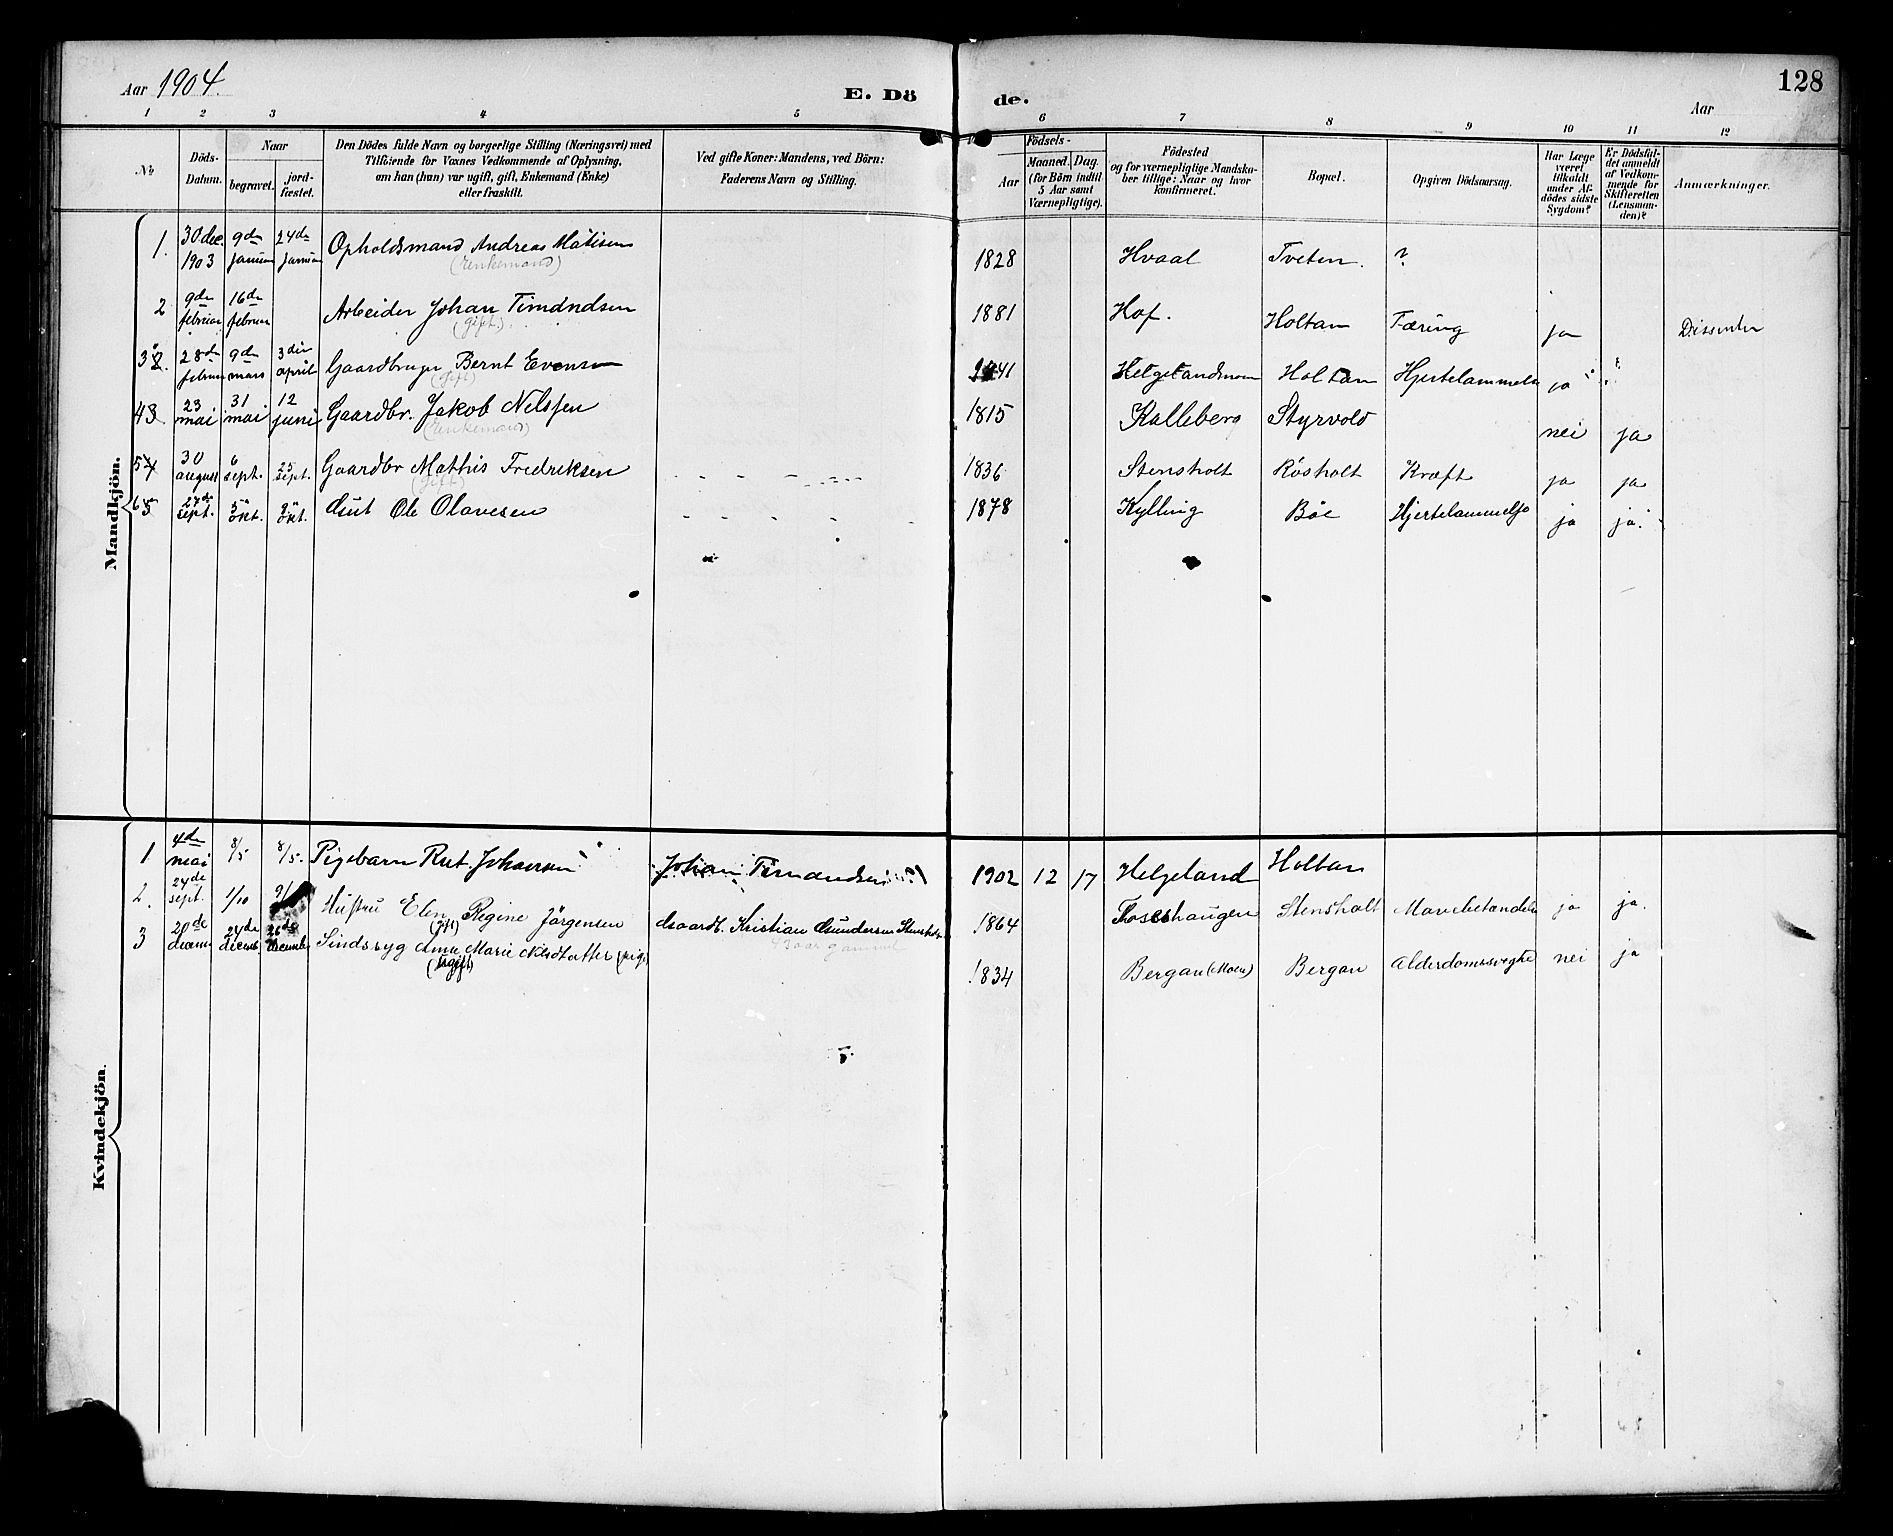 Aar 1904.
E. Döde.
Aar
128
1 2 3 4 5 6 7 8 9 10 11 12
No
Döds-Datum.
Naar
begravet.
jord-fæstet.
Den Dödes fulde Navn og borgerlige Stilling (Næringsvei) med
Tilföiende for Voxnes Vedkommende af Oplysning,
om han (hun) var ugift, gift, Enkemand (Enke)
eller fraskilt.
Ved gifte Koner: Mandens, ved Börn:
Faderens Navn og Stilling.
Födsels-
Aar
Maaned. Dag.
(for Börn indtil
5 Aar samt
Værnepligtige).
Födested
og for værnepligtige Mandska-
ber tillige: Naar og hvor
konfirmeret.
Bopæl.
Opgiven Dödsaarsag.
Har Læge
været
tilkaldt
under Af-
dödes sidste
Sygdom?
Er Dödsfal-
det anmeldt
af Vedkom-
mende for
Skifteretten
(Lensman-
den)?
Anmærkninger.
Mandkjön.
1. 30 dec. 1903 9de januar 24de januar Opholdsmand Andreas Matisen (Enkemand) 1828 Hvaal Tveten. ?
2 9de februar 16de februar Arbeider Johan Timandsen (gift.) 1881 Hof. Holtan Tæring ja Dissenter
3 28de februar 9de mars 3die april Gaardbruger Bernt Evensen (gift) 1841 Helgelandsmoen Holtan Hjertelammelse ja ?
4 23 mai 31 mai 12 juni Gaardbr. Jakob Nilssen (Enkemand) 1815 Kalleberg Styrvold nei ja
5 30 august 6 sept. 25 sept. Gaardbr Mathis Fredriksen (gift) - - - - 1836 Stensholt Røsholt Kræft ja ja
6 27de sept. 5 okt. 9 okt. Gut Ole Olavesen - - - - 1878 Kylling Bøe Hjertelammelse ja ja.
Kvindekjön.
1 4de mai 8/5 8/5. Pigebarn Rut Johansen Johan Timandsen 1902 12 17 Helgeland Holtan
2. 24de sept. 1/10 Hustru Elen Regine Jörgensen (gift) Gaardb. Kristian Gundersen Stensholt 43 aar gammel 1864 Stensholt Mavebetændelse ja ja.
3 20de decemb 24de decemb. 26de decemb. Sindssyg Anne Marie Nilsdatter (pige) (ugift) 1834 Bergan (Moen) Bergan Alderdomssvaghed nei ja